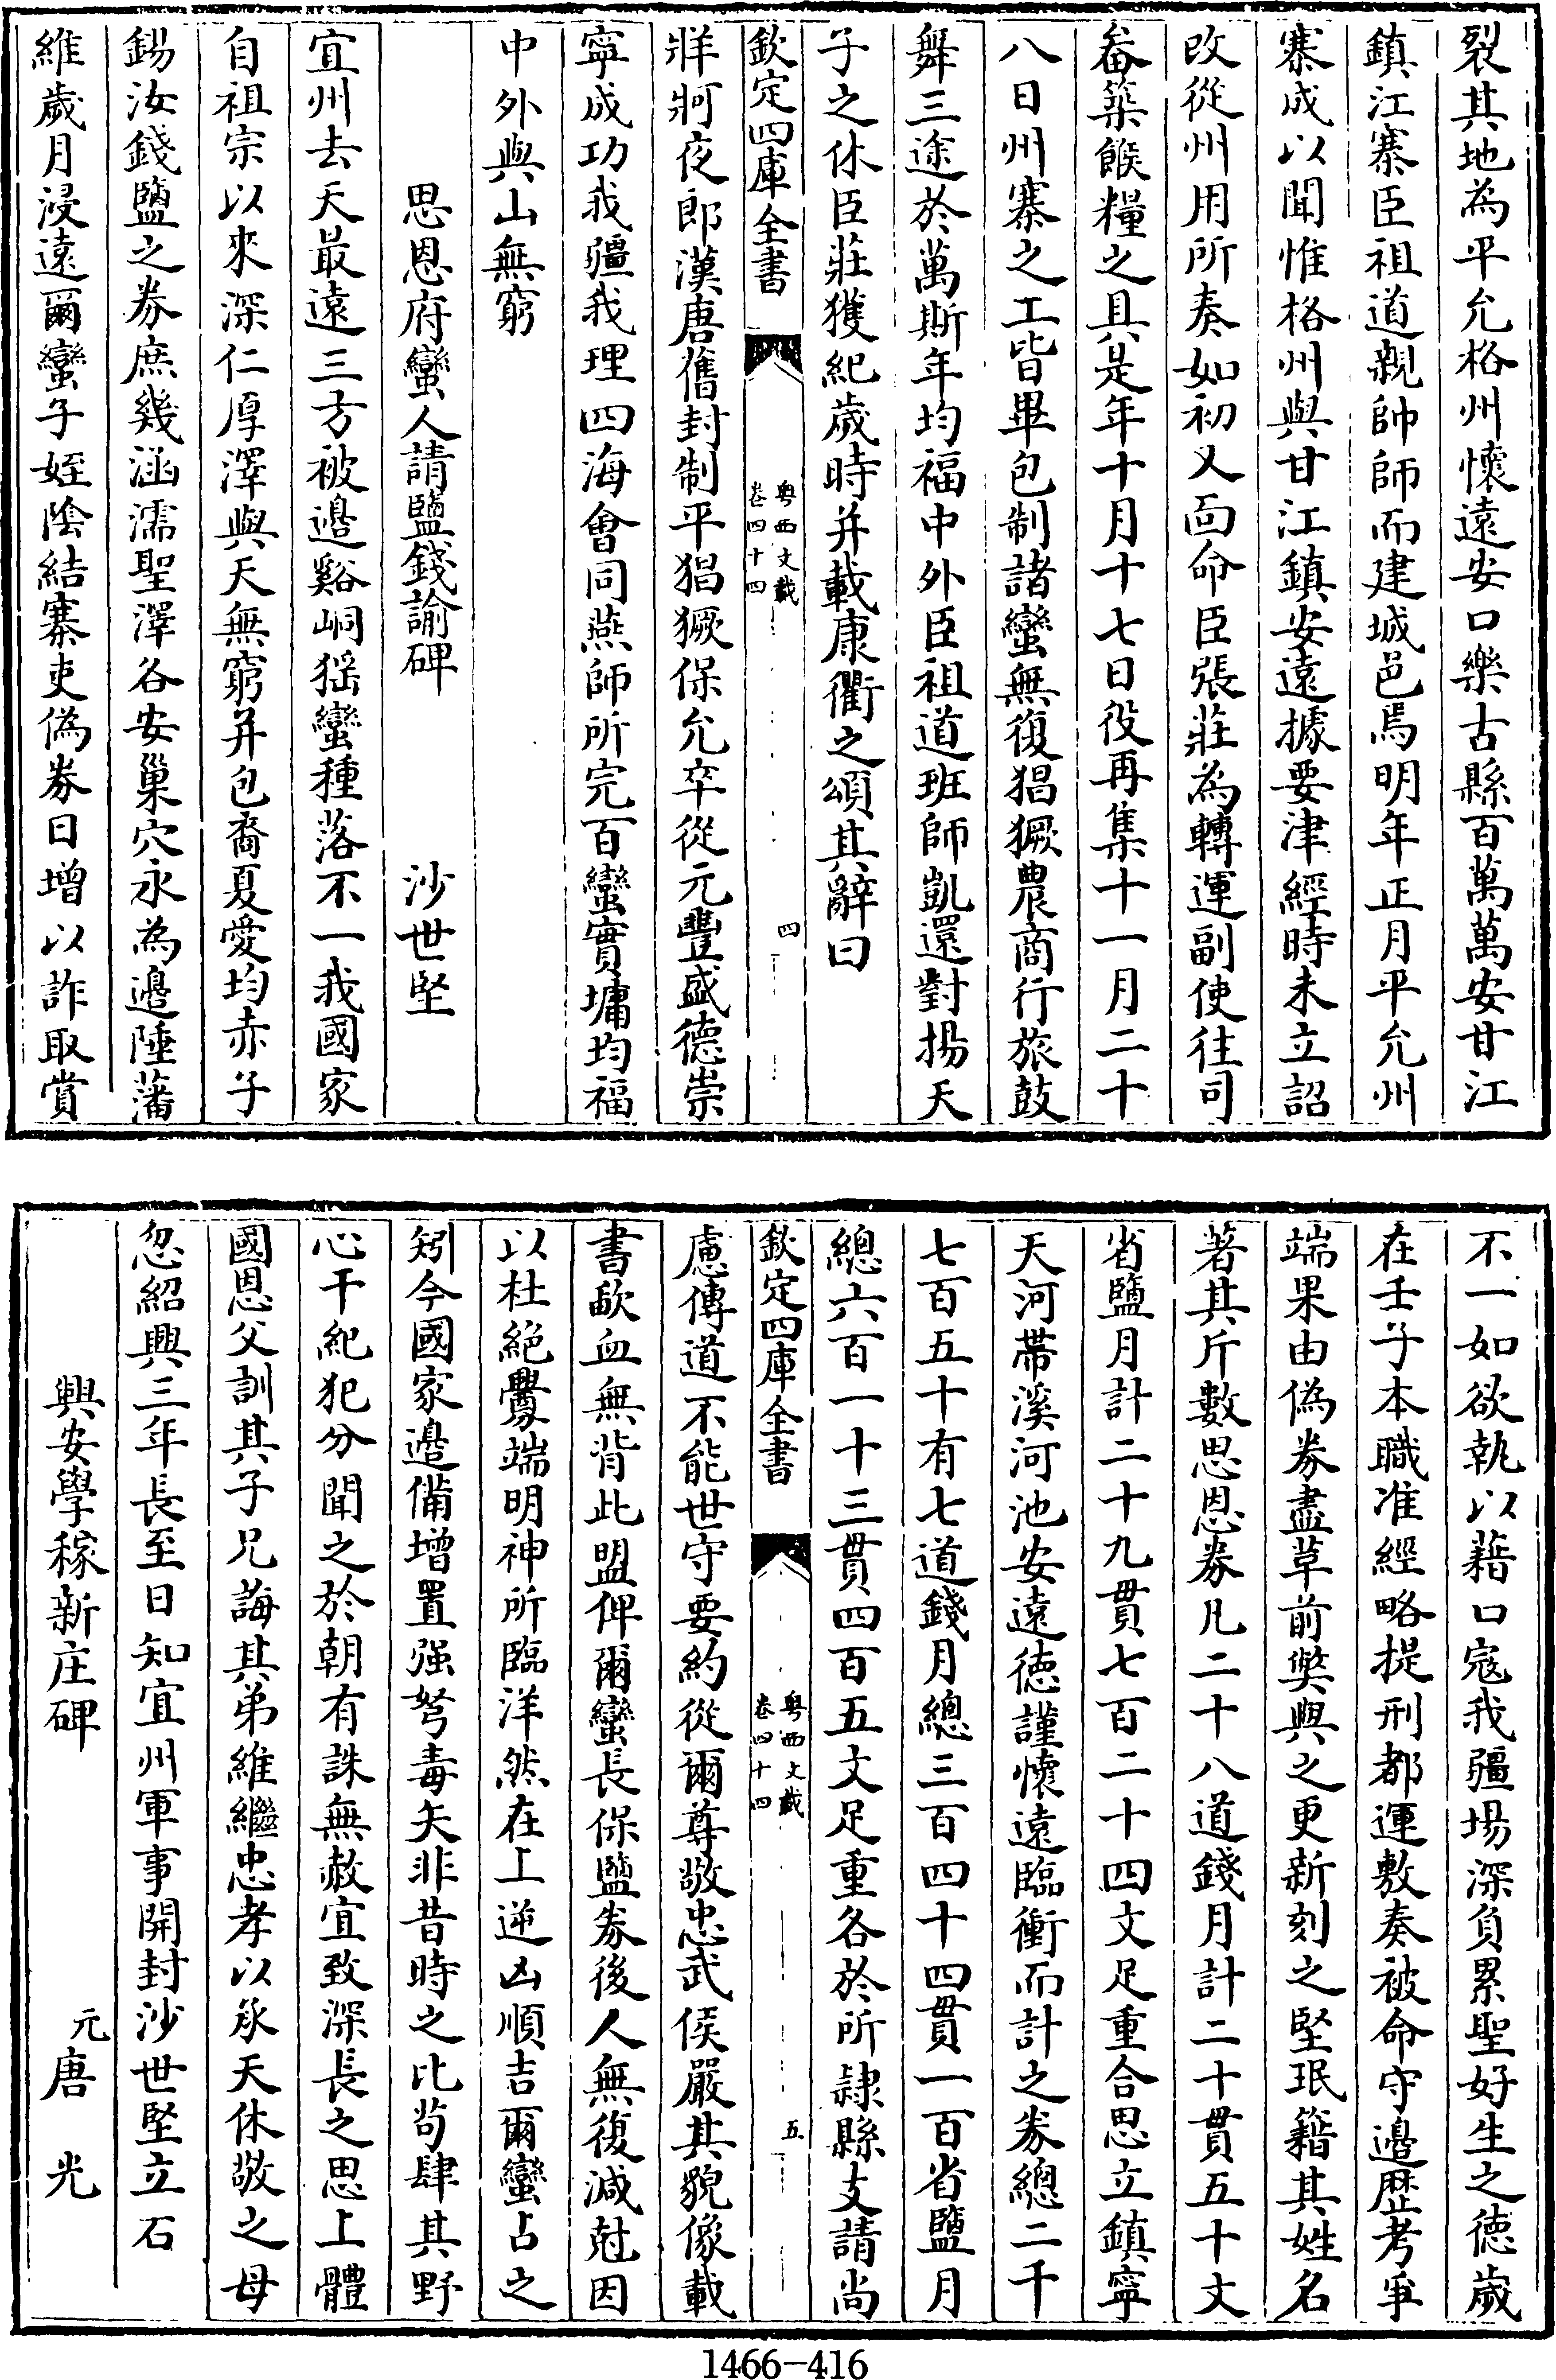 裂其地為平允格州懷遠安口樂古縣百萬萬安甘江
鎮江寨臣祖道親帥師而建城邑焉明年正月平允州
寨成以聞惟格州與甘江鎮安遠據要津經時未立詔
改從州用所奏如初又面命臣張莊為轉運副使往司
畚築餱糧之具是年十月十七日役再集十一月二十
八日州寨之工皆畢包制諸蠻無復猖獗農商行旅鼓
舞三途於萬斯年均福中外臣祖道班師凱還對揚天
子之休臣莊獲紀歲時并載康衢之頌其辭曰
欽定四庫全書
粤西文載
卷四十四
四
牂牁夜郎漢唐舊封制平猖獗保允卒從元豐盛德崇
寧成功我疆我理四海會同燕師所完百蠻實墉均福
中外與山無窮
思恩府蠻人請鹽錢諭碑 沙世堅
宜州去天最遠三方被邊谿峒猺蠻種落不一我國家
自祖宗以來深仁厚澤與天無窮并包裔夏愛均赤子
錫汝錢鹽之券庶幾涵濡聖澤各安巢穴永為邊陲藩
維歲月浸遠爾蠻子姪陰結寨吏偽券日增以詐取賞
不一如欲執以藉口寇我疆場深負累聖好生之德歲
在壬子本職准經略提刑都運敷奏被命守邊歴考爭
端果由偽券盡草前獘與之更新刻之堅珉籍其姓名
著其斤數思恩券凡二十八道錢月計二十貫五十文
省鹽月計二十九貫七百二十四文足重合思立鎮寧
天河帶溪河池安遠徳謹懷遠臨衝而計之券總二千
七百五十有七道錢月總三百四十四貫一百省鹽月
總六百一十三貫四百五文足重各於所隷縣支請尚
欽定四庫全書
粤西文載
卷四十四
五
慮傳道不能世守要約從爾尊敬忠武侯嚴其貌像載
書歃血無背此盟俾爾蠻長保鹽券後人無復減尅因
以杜絶釁端明神所臨洋然在上逆凶順吉爾蠻占之
矧今國家邊備增置强弩毒矢非昔時之比茍肆其野
心干紀犯分聞之於朝有誅無赦宜致深長之思上體
國恩父訓其子兄誨其弟維繼忠孝以承天休敬之母
忽紹興三年長至日知宜州軍事開封沙世堅立石
興安學稼新庄碑 元唐光
1466-416